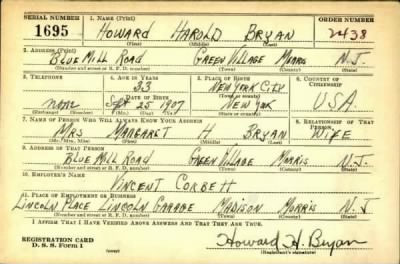 SERIAL NUMBER 1. NAME (Print) ORDER NUMBER
1695 HOWARD HAROLD BRYAN 2438
(First) (Middle) (Last)
2. ADDRESS (Print)
BLUE MILL ROAD GREEN VILLAGE MORRIS N.J.
(Number and street or R. F. D. number) (Town) (County) (State)
3. TELEPHONE 4. AGE IN YEARS 5. PLACE OF BIRTH 6. COUNTRY OF CITIZENSHIP
33 NEW YORK CITY
DATE OF BIRTH (Town or county)
none Sept 25 1907 NEW YORK U.S.A.
(Exchange) (No.) (Mo.) (Day) (Yr.) (State or country)
7. NAME OF PERSON WHO WILL ALWAYS KNOW YOUR ADDRESS 8. RELATIONSHIP OF THAT PERSON
MRS MARGARET H BRYAN WIFE
(Mr., Mrs., Miss) (First) (Middle) (Last)
9. ADDRESS OF THAT PERSON
BLUE MILL ROAD GREEN VILLAGE MORRIS N.J.
(Number and street or R. F. D. number) (Town) (County) (State)
10. EMPLOYER'S NAME
VINCENT CORBETT
11. PLACE OF EMPLOYMENT OR BUSINESS
LINCOLN PLACE LINCOLN GARAGE MADISON MORRIS N.J
(Number and street or R. F. D. number) (Town) (County) (State)
I AFFIRM THAT I HAVE VERIFIED ABOVE ANSWERS AND THAT THEY ARE TRUE.
REGISTRATION CARD
D. S. S. Form 1 Howard H. Bryan
(Registrant's signature)